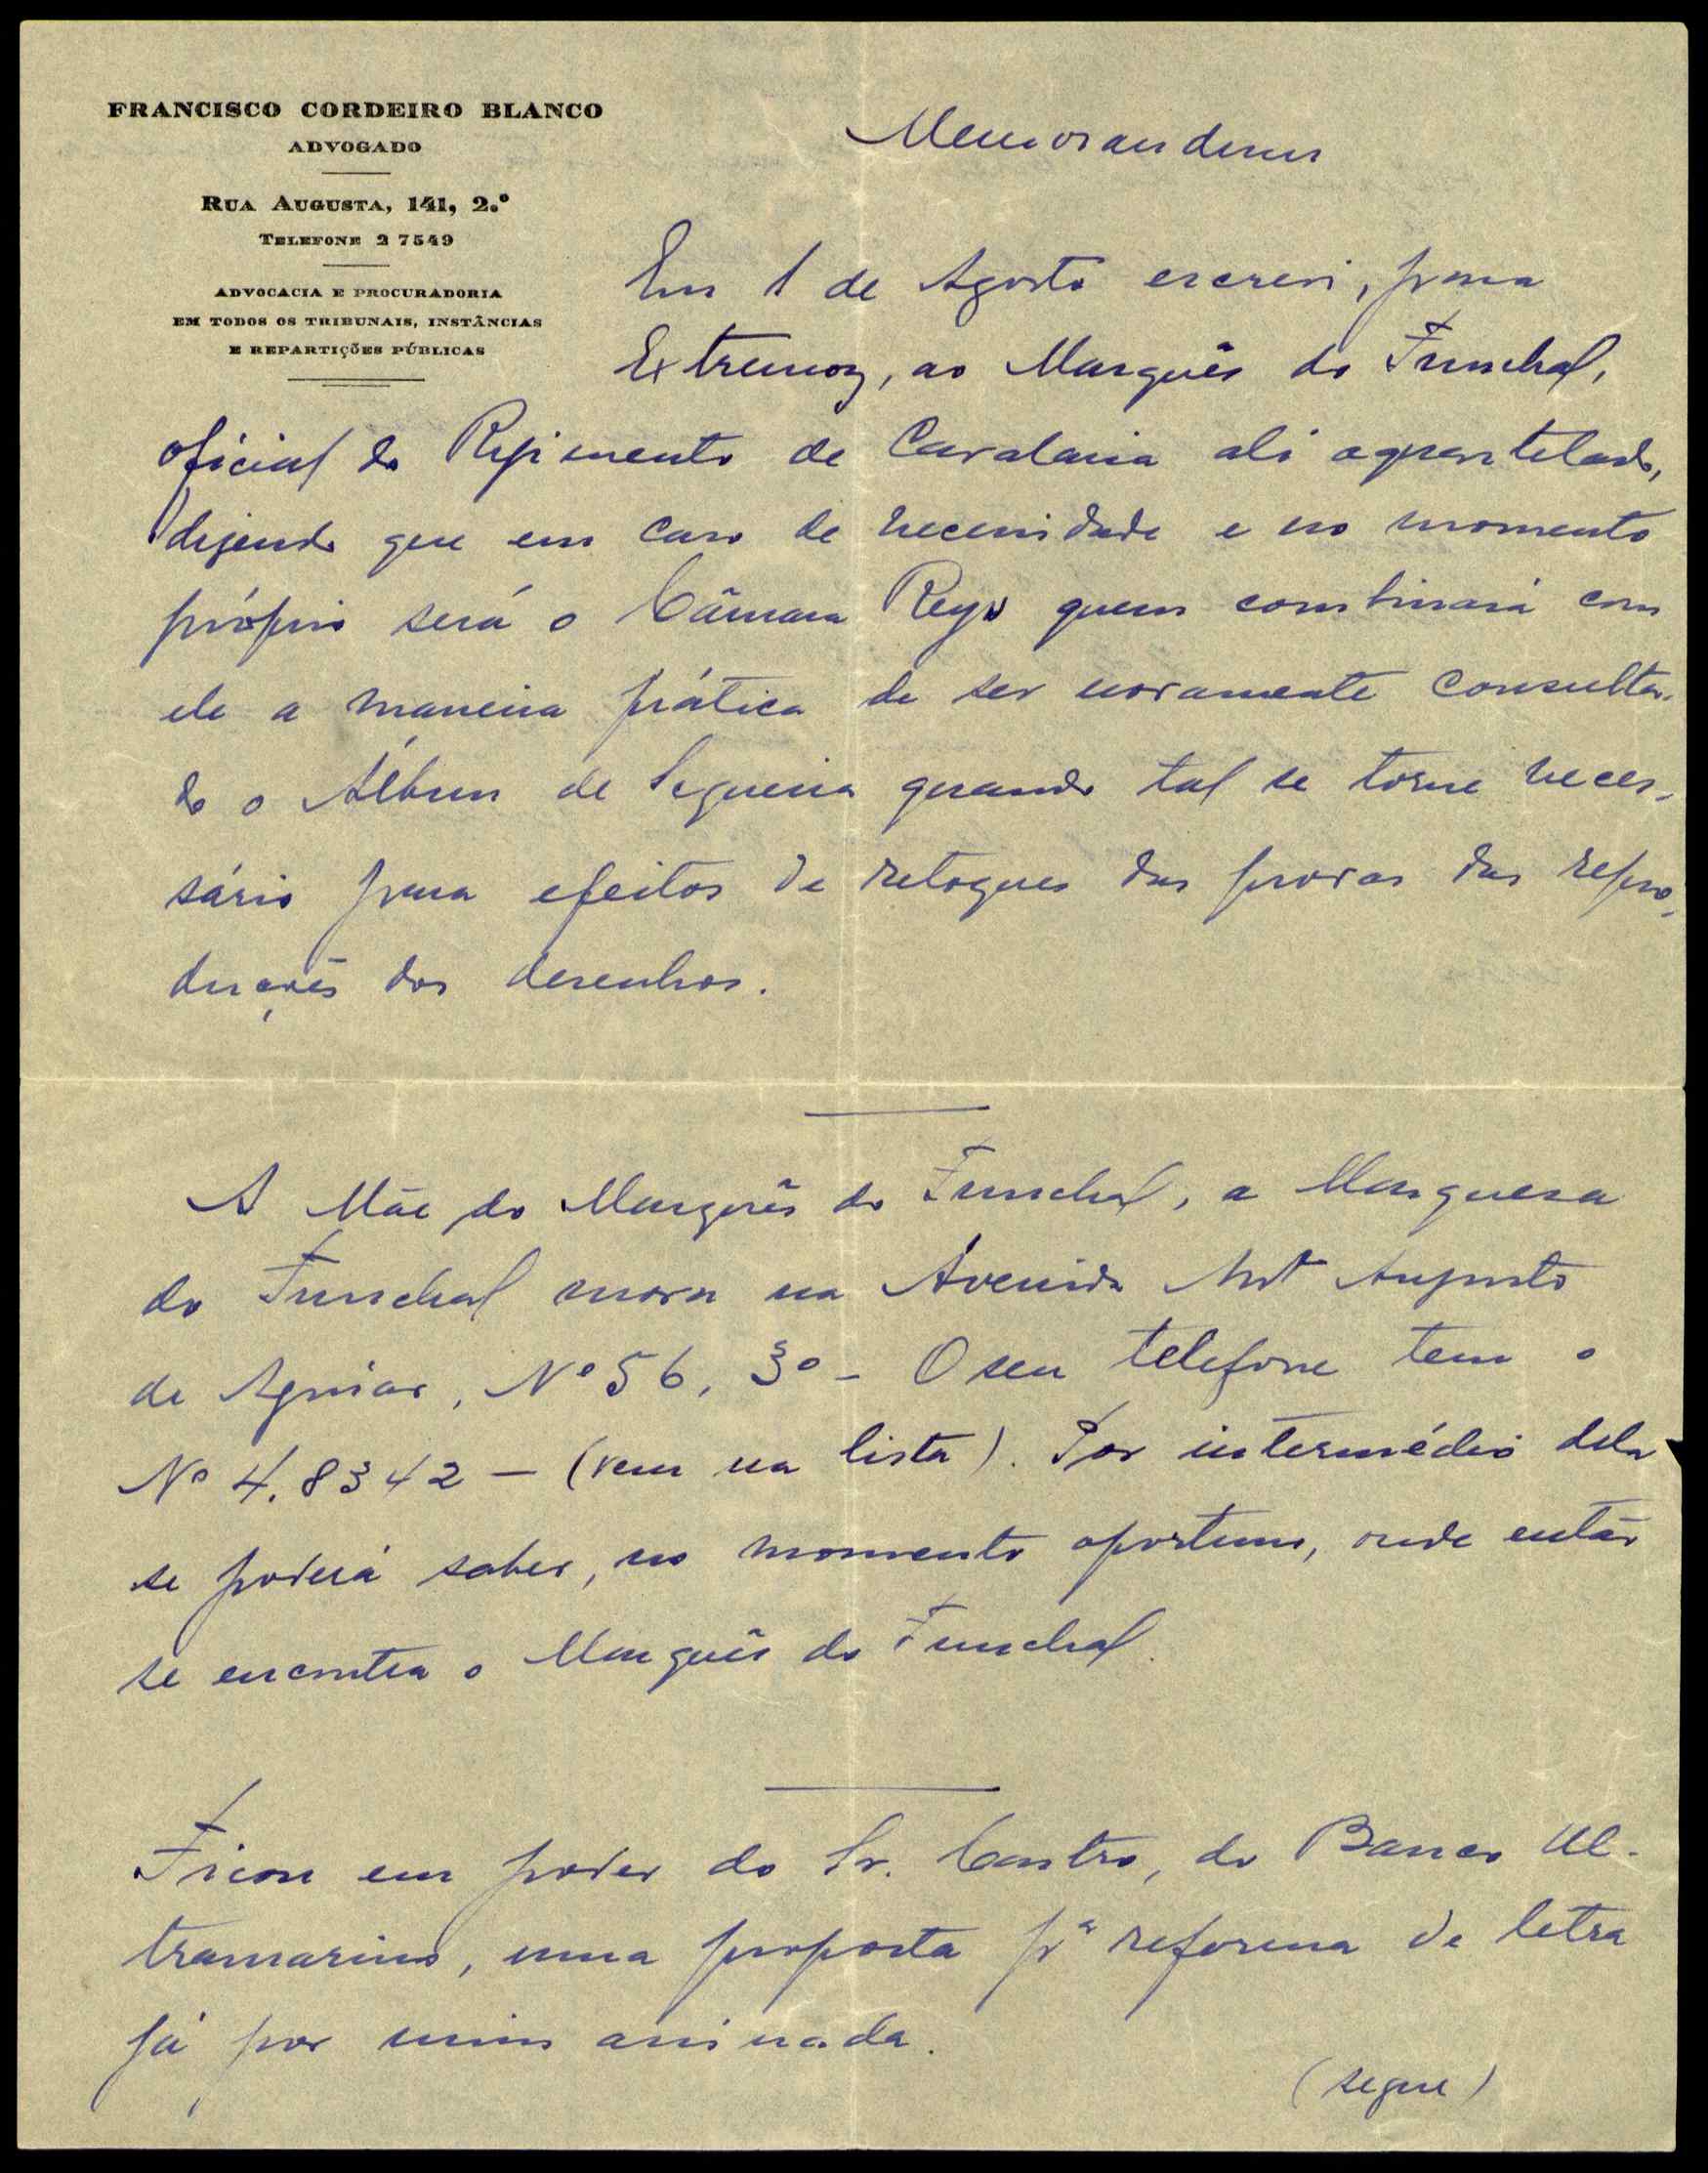 FRANCISCO CORDEIRO BLANCO
ADVOGADO
RUA AUGUSTA, 141, 2.º
TELEFONE 2 7549
ADVOCACIA E PROCURADORIA
EM TODOS OS TRIBUNAIS, INSTÂNCIAS
E REPARTIÇÕES PÚBLICAS
Memorandum
Em 1 de Agosto escrevi, para
Extremoz, ao Marquês do Funchal,
oficial do Regimento de Cavalaria ali aquartelado,
dizendo que em caso de necessidade e no momento
próprio será o Câmara Reys quem combinará com
ele a maneira prática de ser novamente consulta-
do o Álbum de Sequeira quando tal se torne neces-
sário para efeitos de retoques das provas das repro-
duções dos desenhos.
A Mãe do Marquês do Funchal, a Marquesa
do Funchal mora na Avenida Antº Augusto
de Aguiar, Nº 56, 3º - O seu telefone tem o
Nº 4.8342 - (vem na lista). Por intermédio dela
se poderá saber, no momento oportuno, onde então
se encontra o Marquês do Funchal.
Ficou em poder do Sr. Castro, do Banco Ul-
tramarino, uma proposta pª reforma de letra
já por mim assinada.
(segue)